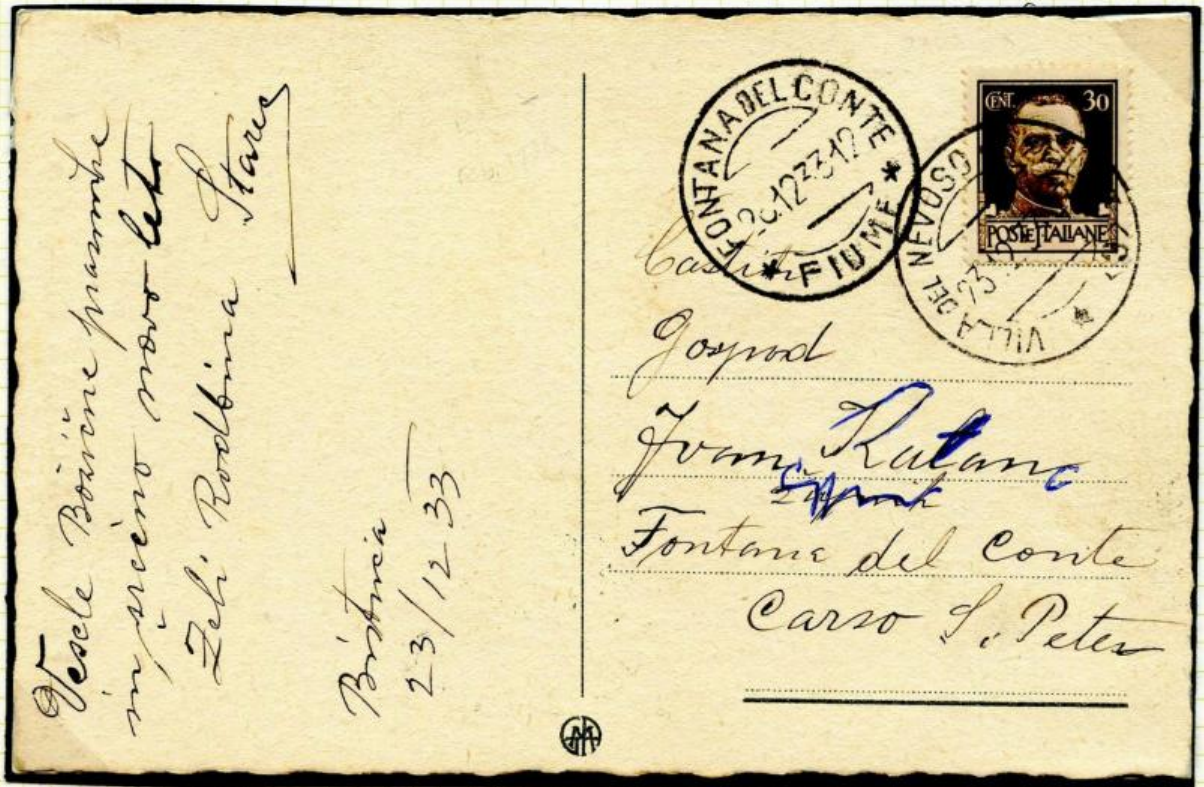 Vesele Božične praznike
in srečno novo leto
Želi Rodbina Starec
Bistrica
23/12 33
FONTANA DEL CONTE
FIUME
26.12.33.12
VILLA DEL NEVOSO
23
CENT. 30
POSTE ITALIANE
Gospod
Ivan
župnik
Fontana del Conte
Carso S. Peter